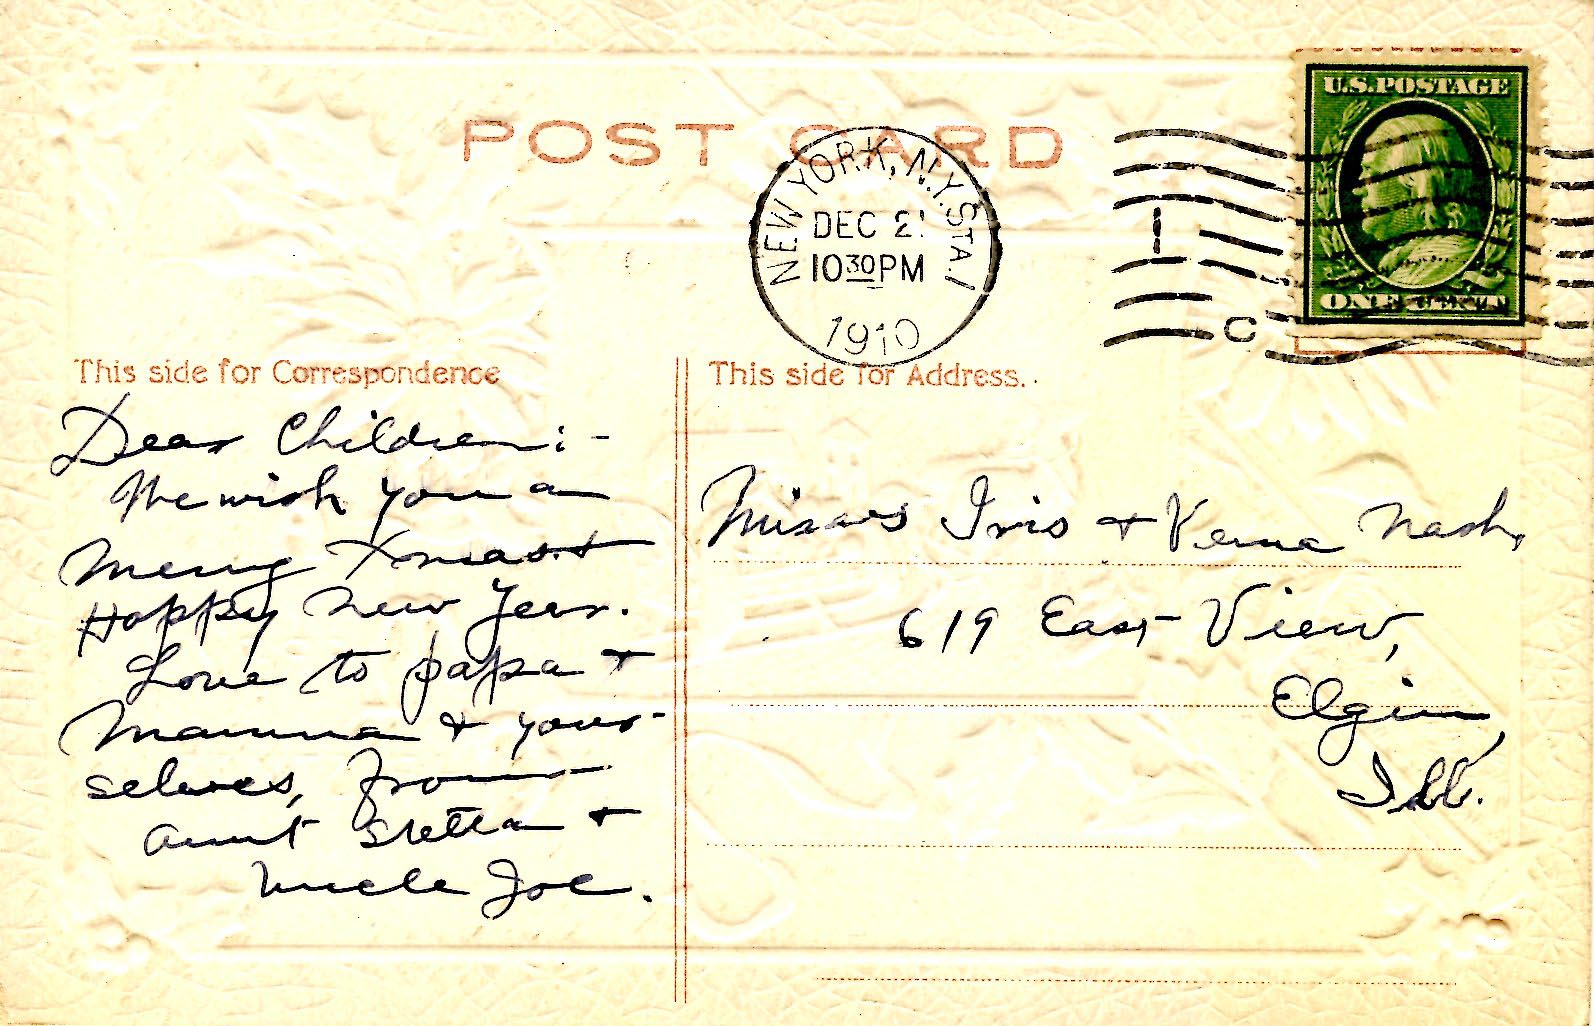 POST CARD
U.S. POSTAGE
ONE CENT
NEW YORK, N.Y. STA. 1
DEC 21
10 30 PM
1910
C
This side for Correspondence
This side for Address.
Dear Children:-
We wish you a
Merry Xmas. &
Happy New Year.
Love to papa &
Mamma & your-
selves, from
Aunt Stetta &
Uncle Joe.
Misses Iris & Verna Nash,
619 East View,
Elgin,
Ill.